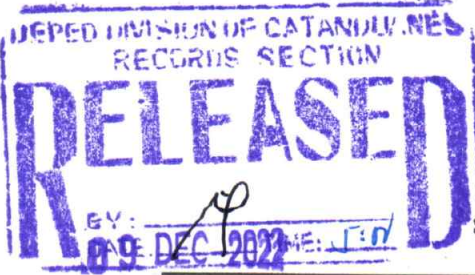 DEPED DIVISION OF CATANDUANES
RECORDS SECTION
RELEASED
BY:
DATE: 09 DEC 2022 TIME: